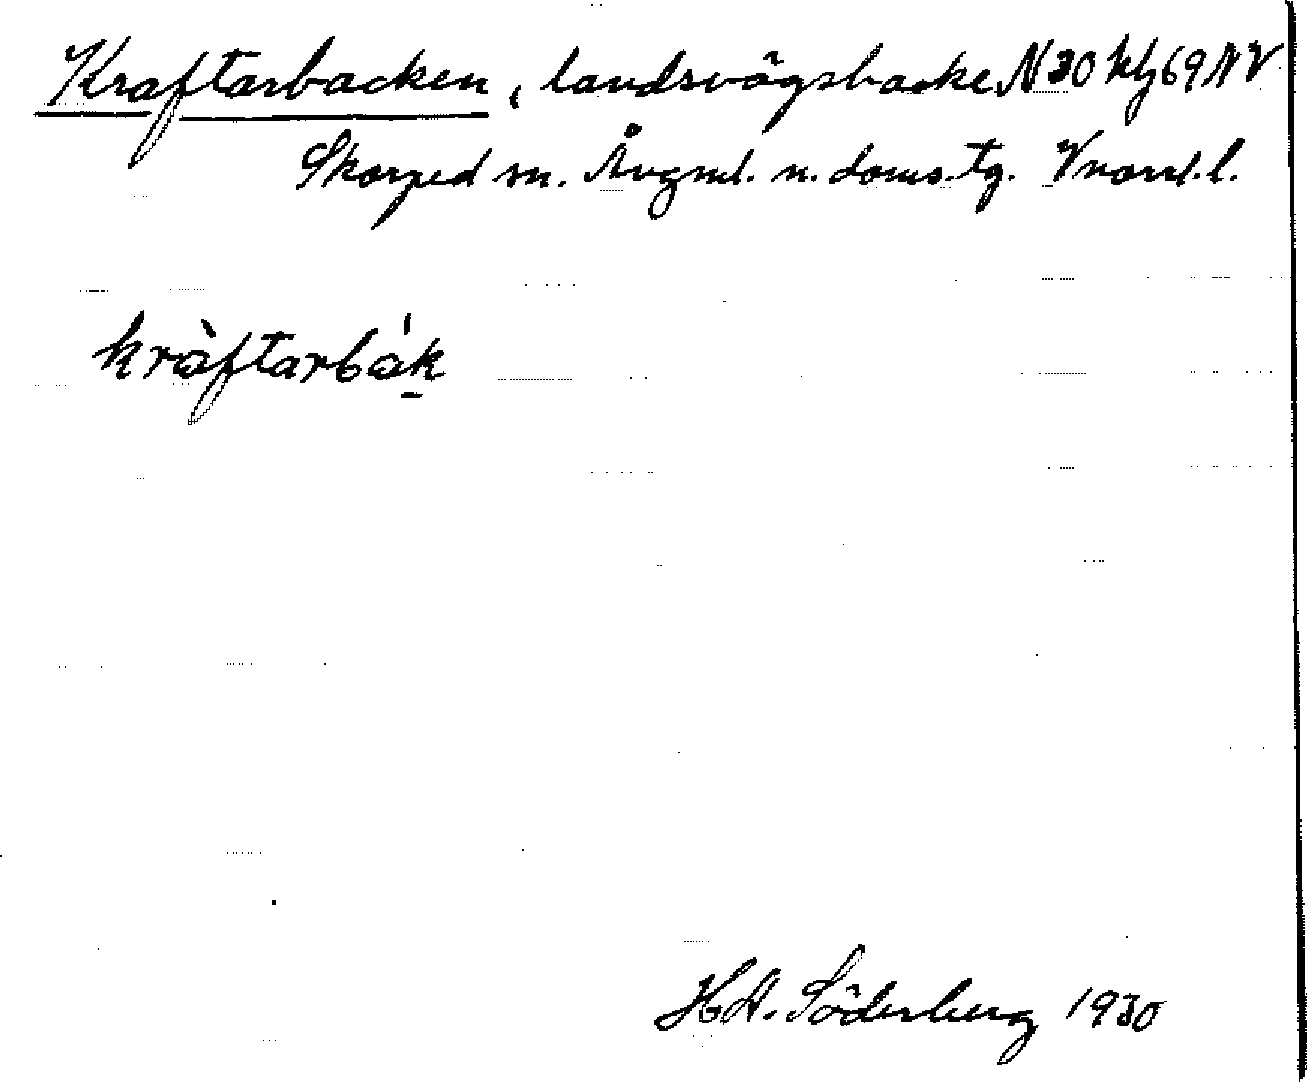 Kraftarbacken, landsvägsbacke N 30 klj 69 NV
Skorped sn. Ångml. n. doms.tg. Vnorrl.l.
kràftarbák
H.A. Söderberg 1930